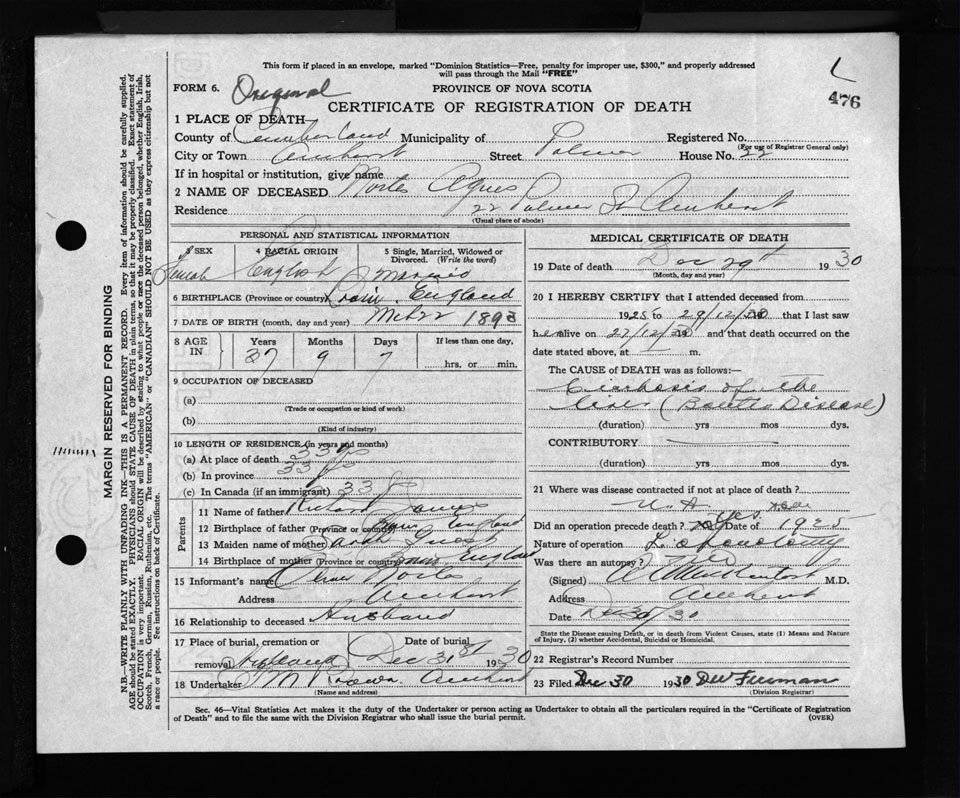 This form if placed in an envelope, marked "Dominion Statistics—Free, penalty for improper use, $300," and properly addressed
will pass through the Mail "FREE"
FORM 6. Original PROVINCE OF NOVA SCOTIA
476
CERTIFICATE OF REGISTRATION OF DEATH
1 PLACE OF DEATH—
County of Cumberland Municipality of Registered No.
(For use of Registrar General only)
City or Town Amherst Street Palmer House No. 22
If in hospital or institution, give name
2 NAME OF DECEASED Agnes
Residence 22 Palmer St Amherst
(Usual place of abode)
PERSONAL AND STATISTICAL INFORMATION
3 SEX 4 RACIAL ORIGIN 5 Single, Married, Widowed or Divorced. (Write the word)
Female English Married
6 BIRTHPLACE (Province or country) England
7 DATE OF BIRTH (month, day and year) 22 1893
8 AGE IN Years Months Days If less than one day,
37 9 7 hrs. or min.
9 OCCUPATION OF DECEASED
(a)
(Trade or occupation or kind of work)
(b)
(Kind of industry)
10 LENGTH OF RESIDENCE (in years and months)
(a) At place of death 33
(b) In province 33
(c) In Canada (if an immigrant) 33
Parents
11 Name of father Richard
12 Birthplace of father (Province or country) England
13 Maiden name of mother
14 Birthplace of mother (Province or country) England
15 Informant's name
Address Amherst
16 Relationship to deceased Husband
17 Place of burial, cremation or removal Highland Date of burial Dec 31st 1930
18 Undertaker Brown Amherst
(Name and address)
MEDICAL CERTIFICATE OF DEATH
19 Date of death Dec 29th 1930
(Month, day and year)
20 I HEREBY CERTIFY that I attended deceased from
1925 to 29/12/30 that I last saw
her alive on 27/12/30 and that death occurred on
date stated above, at — m.
The CAUSE of DEATH was as follows:—
Cirrhosis of the
liver (Banti's Disease)
(duration) yrs mos dys.
CONTRIBUTORY
(duration) yrs mos dys.
21 Where was disease contracted if not at place of death?
Did an operation precede death? yes. Date of 1925
Nature of operation
Was there an autopsy?
(Signed) M.D.
Address Amherst
Date 30
State the Disease causing Death, or in death from Violent Causes, state (1) Means and Nature
of Injury, (2) whether Accidental, Suicidal or Homicidal.
22 Registrar's Record Number
23 Filed Dec 30 1930
(Division Registrar)
Sec. 46—Vital Statistics Act makes it the duty of the Undertaker or person acting as Undertaker to obtain all the particulars required in the "Certificate of Registration
of Death" and to file the same with the Division Registrar who shall issue the burial permit.
(OVER)
MARGIN RESERVED FOR BINDING
N.B.—WRITE PLAINLY WITH UNFADING INK—THIS IS A PERMANENT RECORD. Every item of information should be carefully supplied.
AGE should be stated EXACTLY. PHYSICIANS should STATE CAUSE OF DEATH in plain terms, so that it may be properly classified. Exact statement of
OCCUPATION is very important. RACIAL ORIGIN will be described by stating to what people or race the deceased person belonged, whether English, Irish,
Scotch, French, German, Russian, Ruthenian, etc. The terms "AMERICAN" or "CANADIAN" SHOULD NOT BE USED as they express citizenship but not
a race or people. See instructions on back of Certificate.